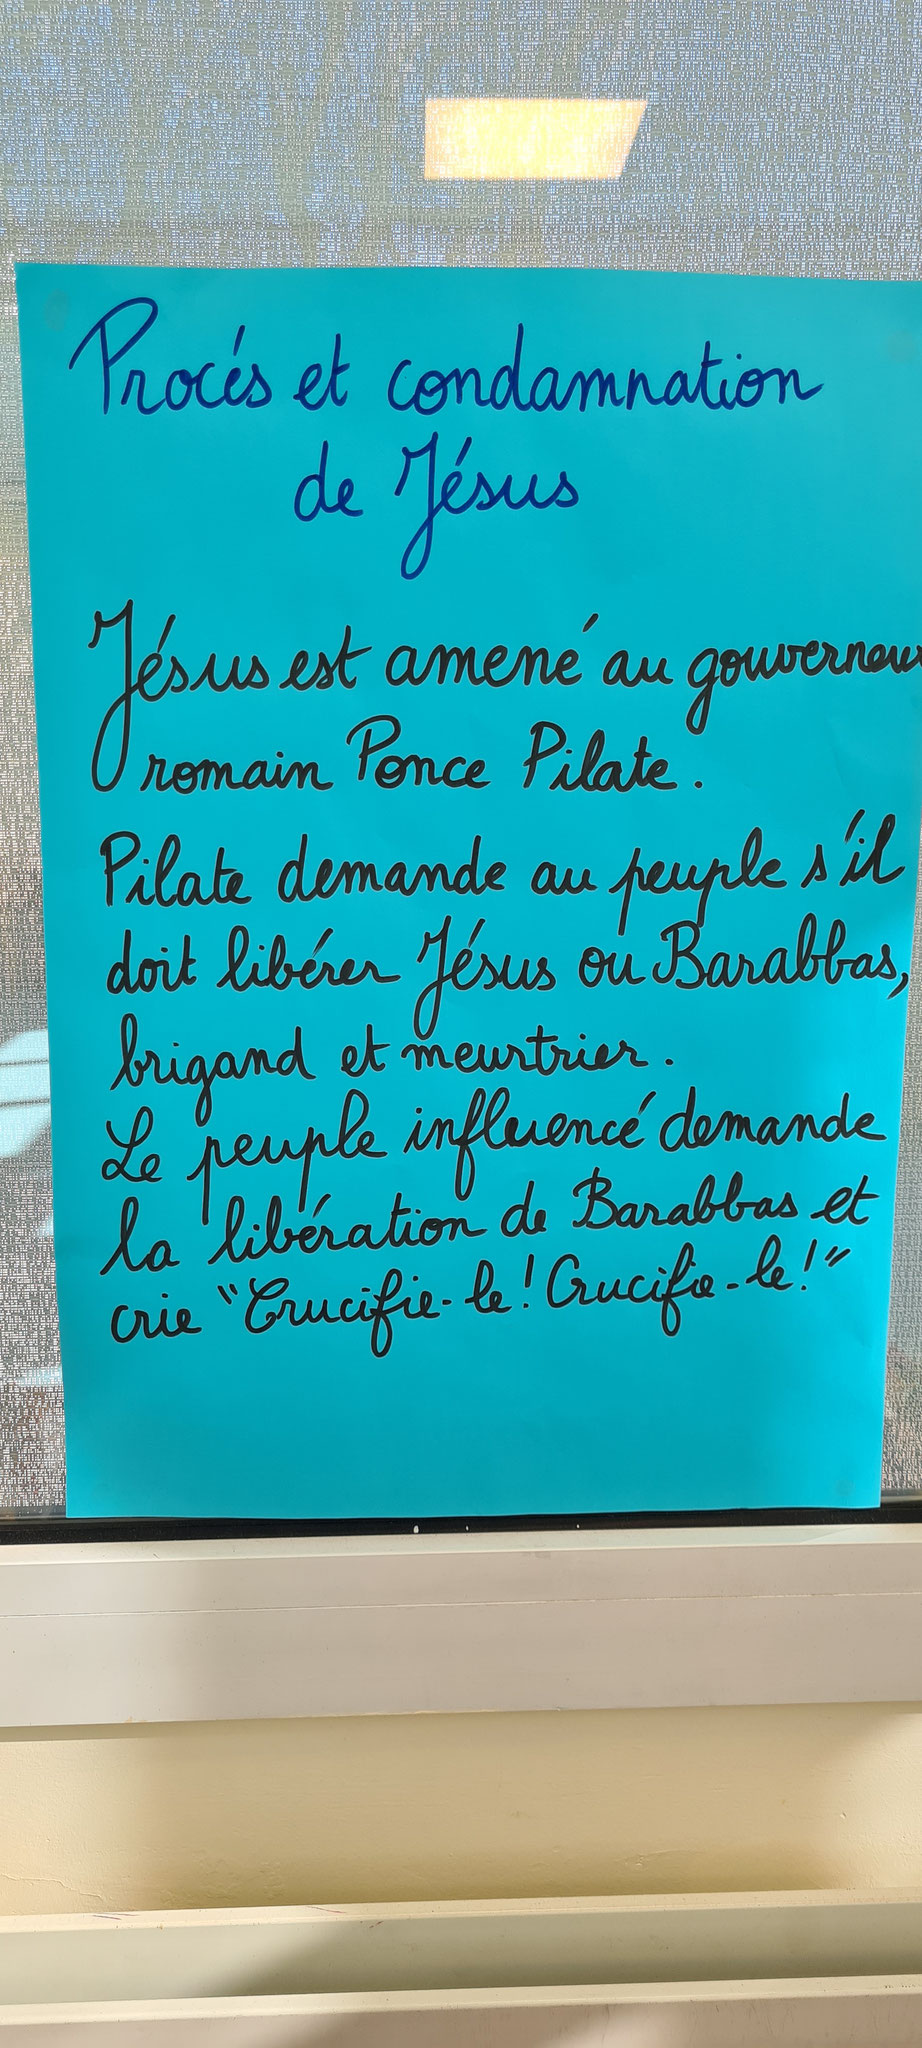 Procés et condamnation
de Jésus
Jésus est amené au gouverneur
romain Ponce Pilate.
Pilate demande au peuple s'il
doit libérer Jésus ou Barabbas,
brigand et meurtrier.
Le peuple influencé demande
la libération de Barabbas et
crie "Crucifie-le! Crucifie-le!"